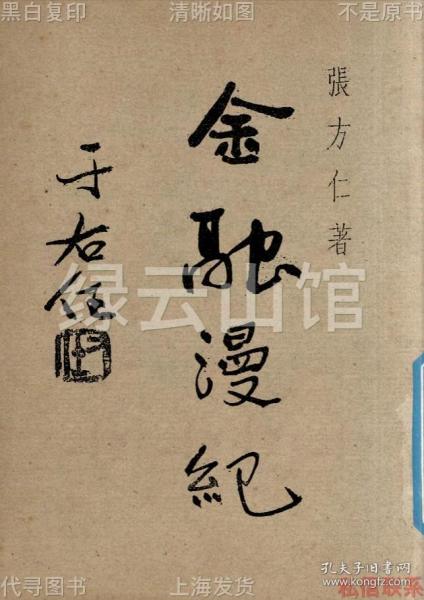 黑白复印
清晰如图
不是原书
張方仁著
金融漫紀
于右任
缘云山馆
孔夫子旧书网
www.kongfz.com
代寻图书
上海发货
私信联系